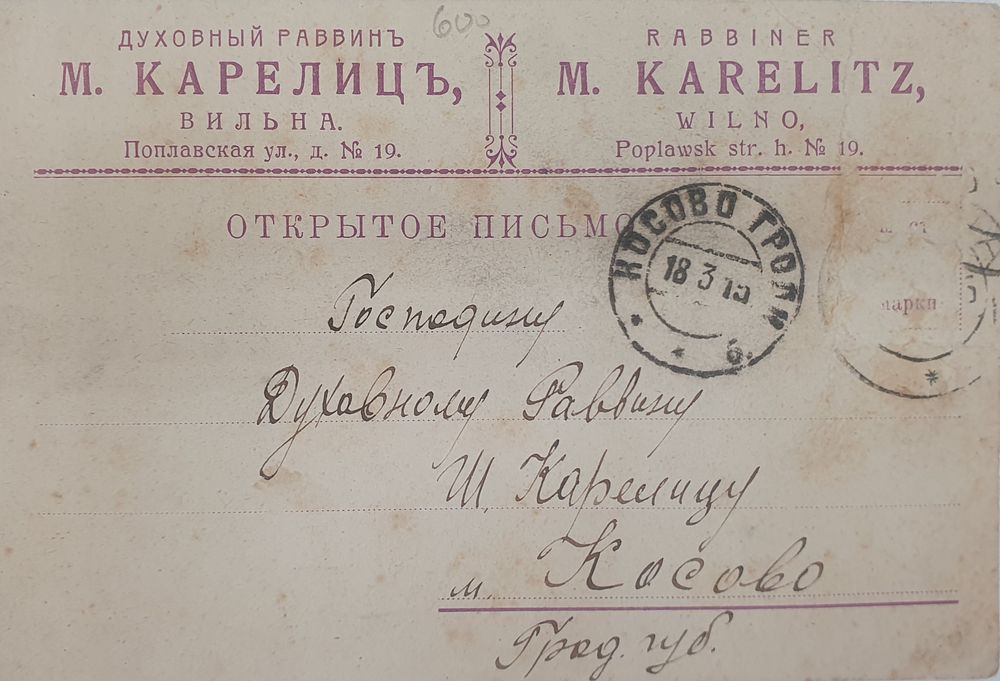 600
ДУХОВНЫЙ РАВВИНЪ
М. КАРЕЛИЦЪ,
ВИЛЬНА.
Поплавская ул., д. № 19.
RABBINER
M. KARELITZ,
WILNO,
Poplawsk str. h. № 19.
ОТКРЫТОЕ ПИСЬМО
КОСОВО ГРОДН
18 3 13
б.
марки
Господину
Духовному Раввину
Ш. Карелицу
м. Косово
Грод. губ.